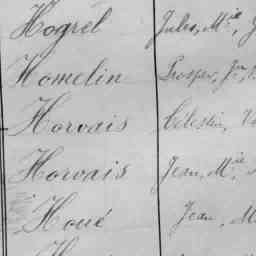 Hogrel Jules, M.ie,
Homelin Prosper, Jn,
Horvais Célestin, V
Horvais Jean, M.ie,
Houé Jean, M